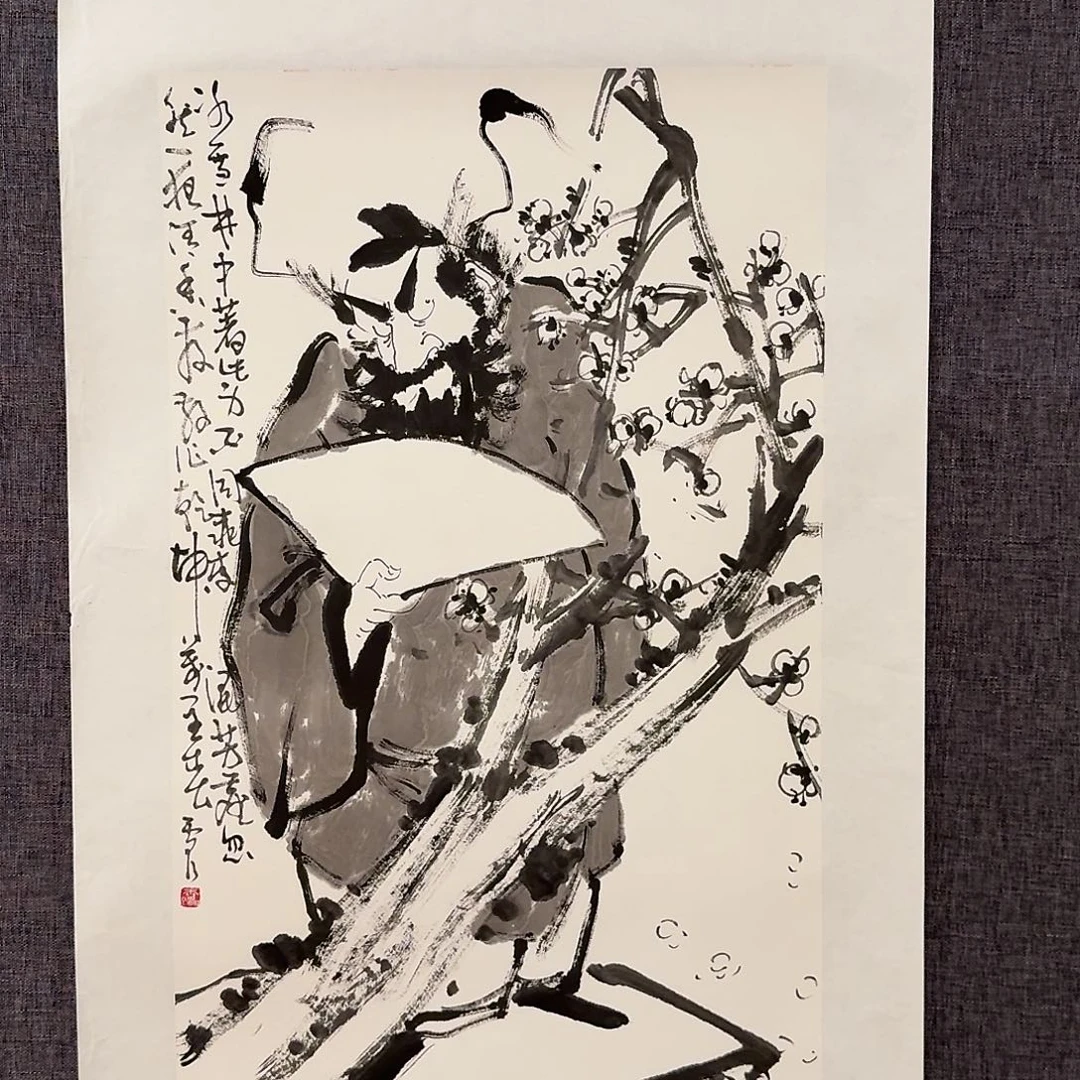 冰雪林中著此身不同桃李混芳塵忽
然一夜清香發散作乾坤萬里春